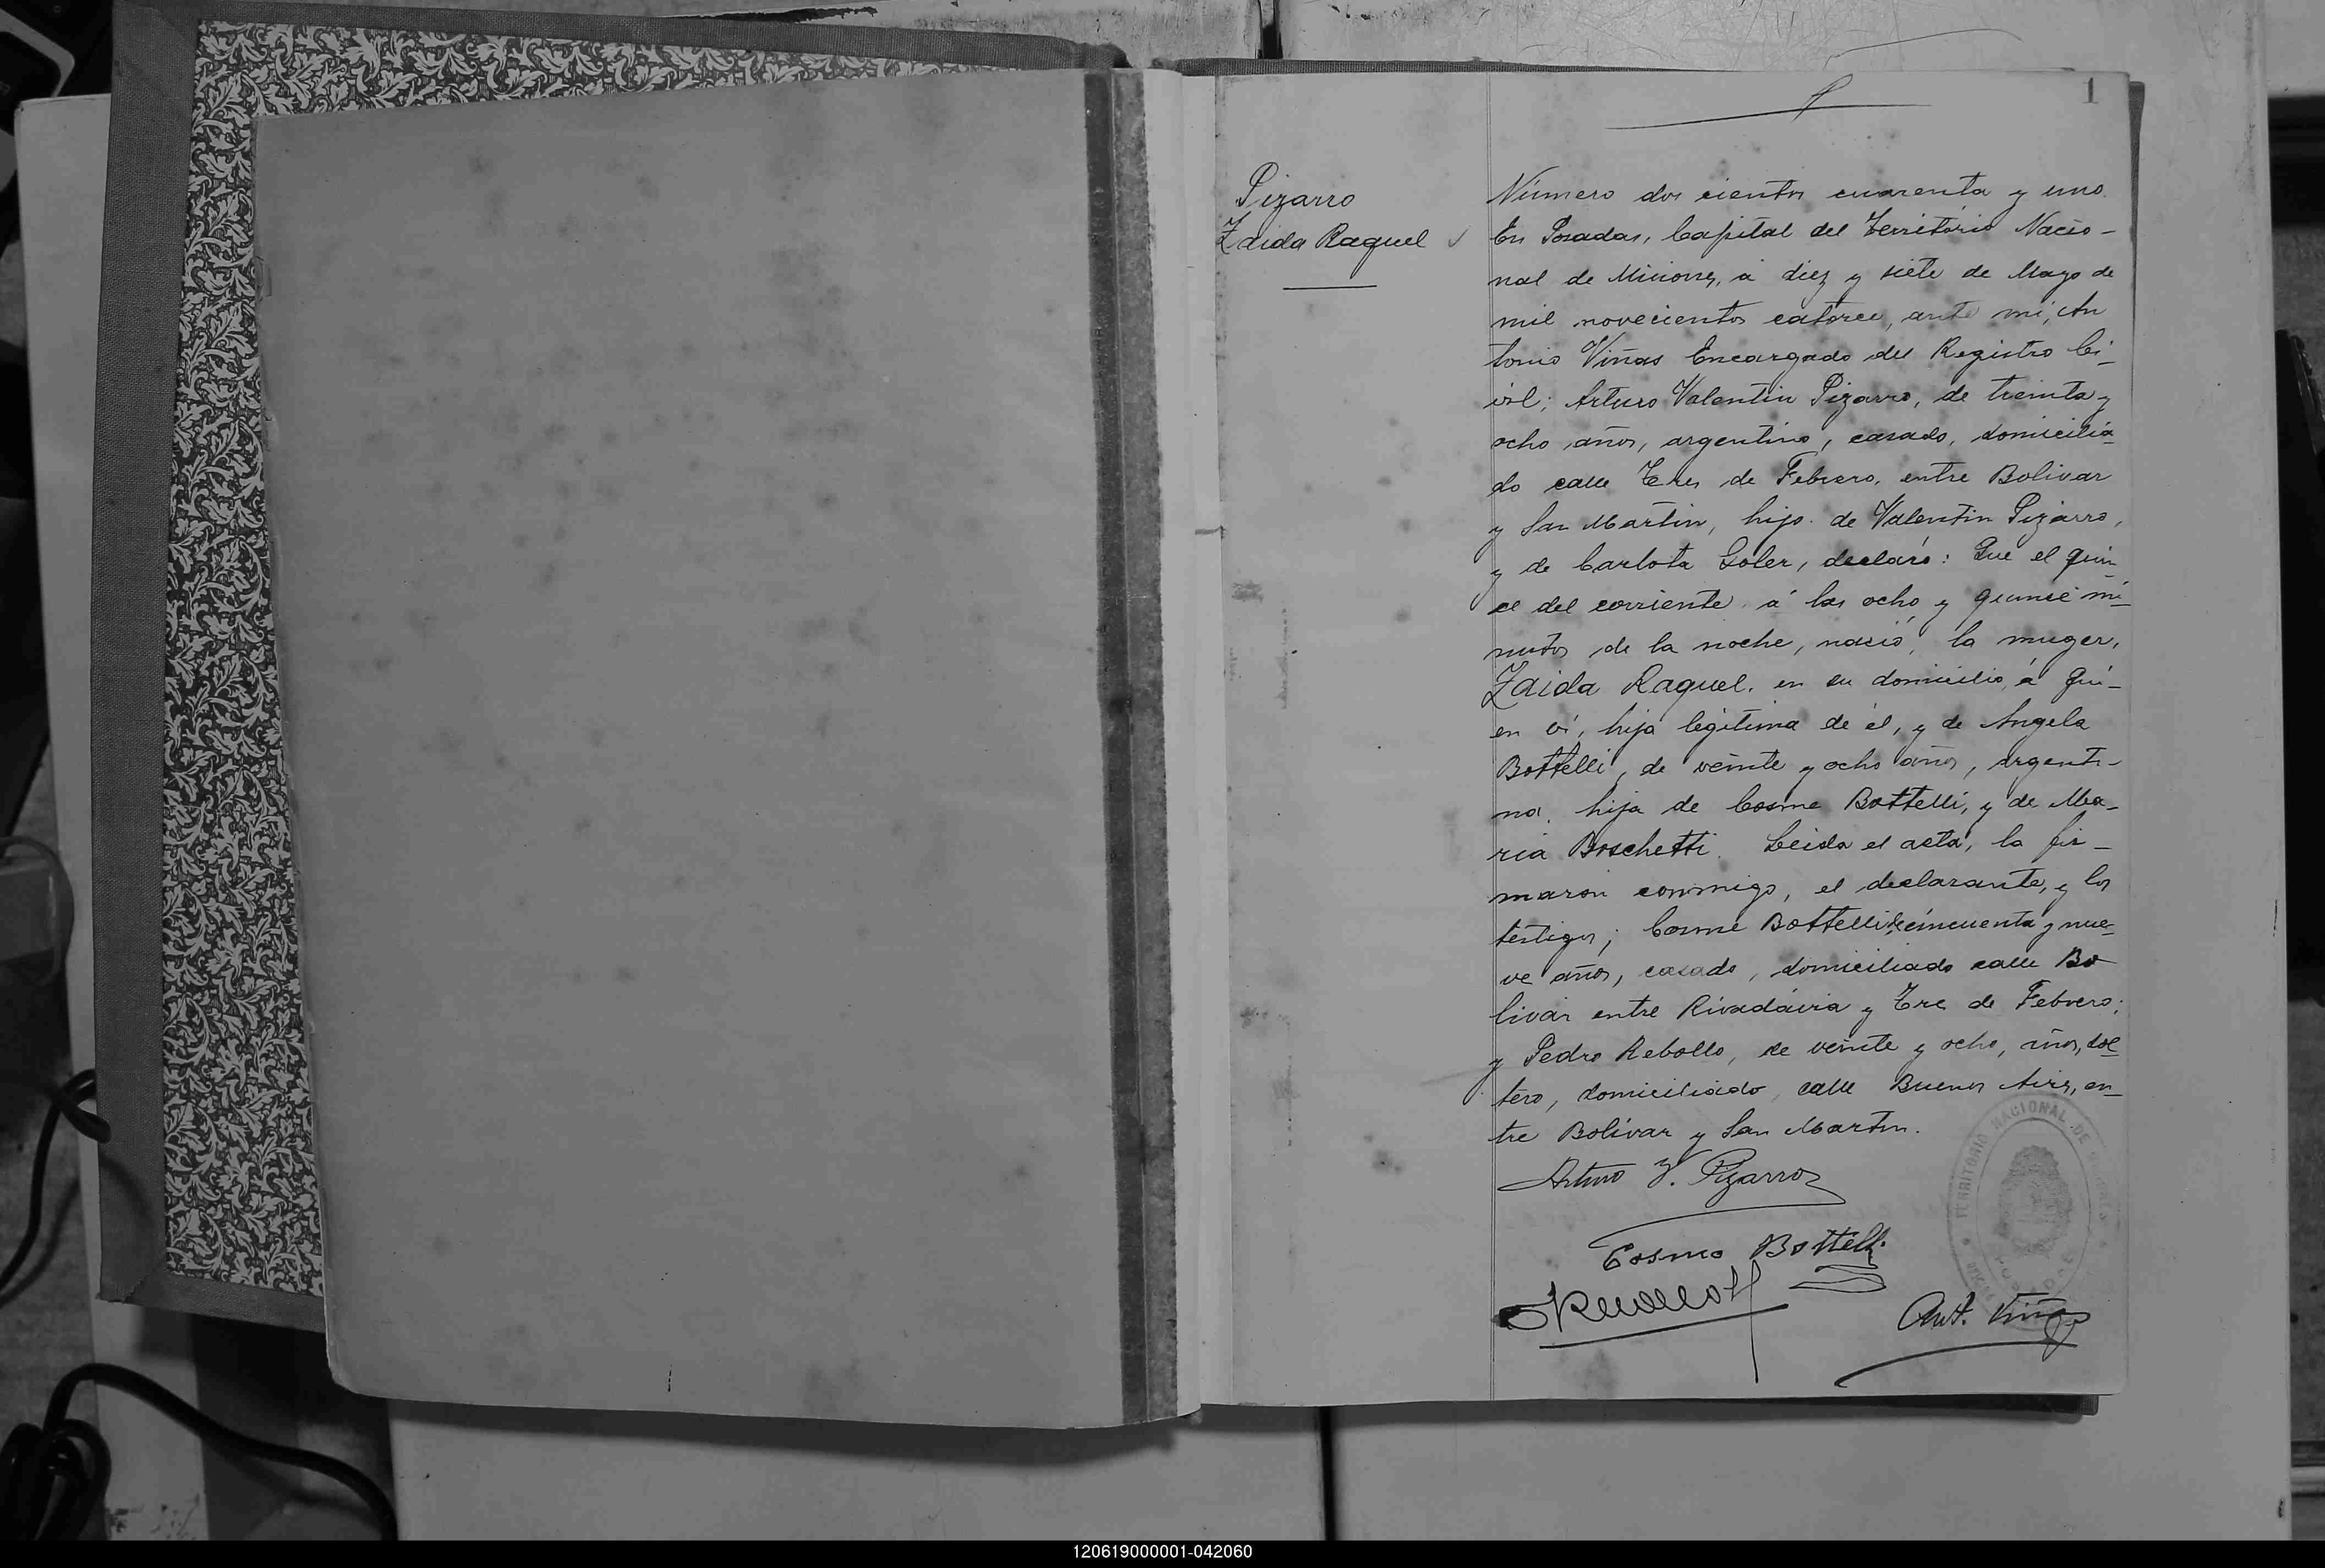 1
Pizarro
Zaida Raquel
Número dos cientos cuarenta y uno.
En Posadas, Capital del Territorio Nacio-
nal de Misiones, á diez y siete de Mayo de
mil novecientos catorce, ante mi, An
tonio Viñas Encargado del Registro Ci-
vil; Arturo Valentin Pizarro, de treinta y
ocho años, argentino, casado, domicilia
do calle Tres de Febrero, entre Bolivar
y San Martin, hijo de Valentin Pizarro,
y de Carlota Soler, declaró: Que el quin
ce del corriente á las ocho y quince mi-
nutos de la noche, nació, la muger,
Zaida Raquel, en su domicilio, á qui-
en ví, hija legítima de él, y de Angela
Bottelli, de veinte y ocho años, argenti-
na, hija de Cosme Bottelli, y de Ma-
ria Boschetti. Leida el acta, la fir-
maron conmigo, el declarante, y los
testigos; Cosme Bottelli, de cincuenta y nue-
ve años, casado, domiciliado calle Bo-
livar entre Rivadavia y Tres de Febrero;
y Pedro Rebollo, de veinte y ocho, años, sol
tero, domiciliado, calle Buenos Aires, en-
tre Bolivar y San Martin.
Arturo V. Pizarro
Cosme Bottelli
Ant. Viñas
TERRITORIO NACIONAL DE
120619000001-042060